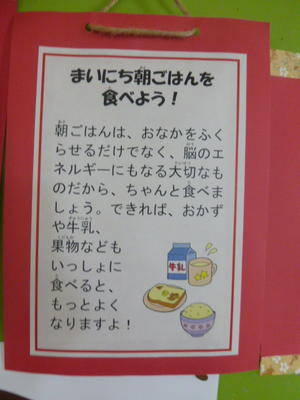 まいにち朝ごはんを
食べよう！
朝ごはんは、おなかをふく
らせるだけでなく、脳のエ
ネルギーにもなる大切なも
のだから、ちゃんと食べま
しょう。できれば、おかず
や牛乳、
果物なども
いっしょに
食べると、
もっとよく
なりますよ！
牛乳